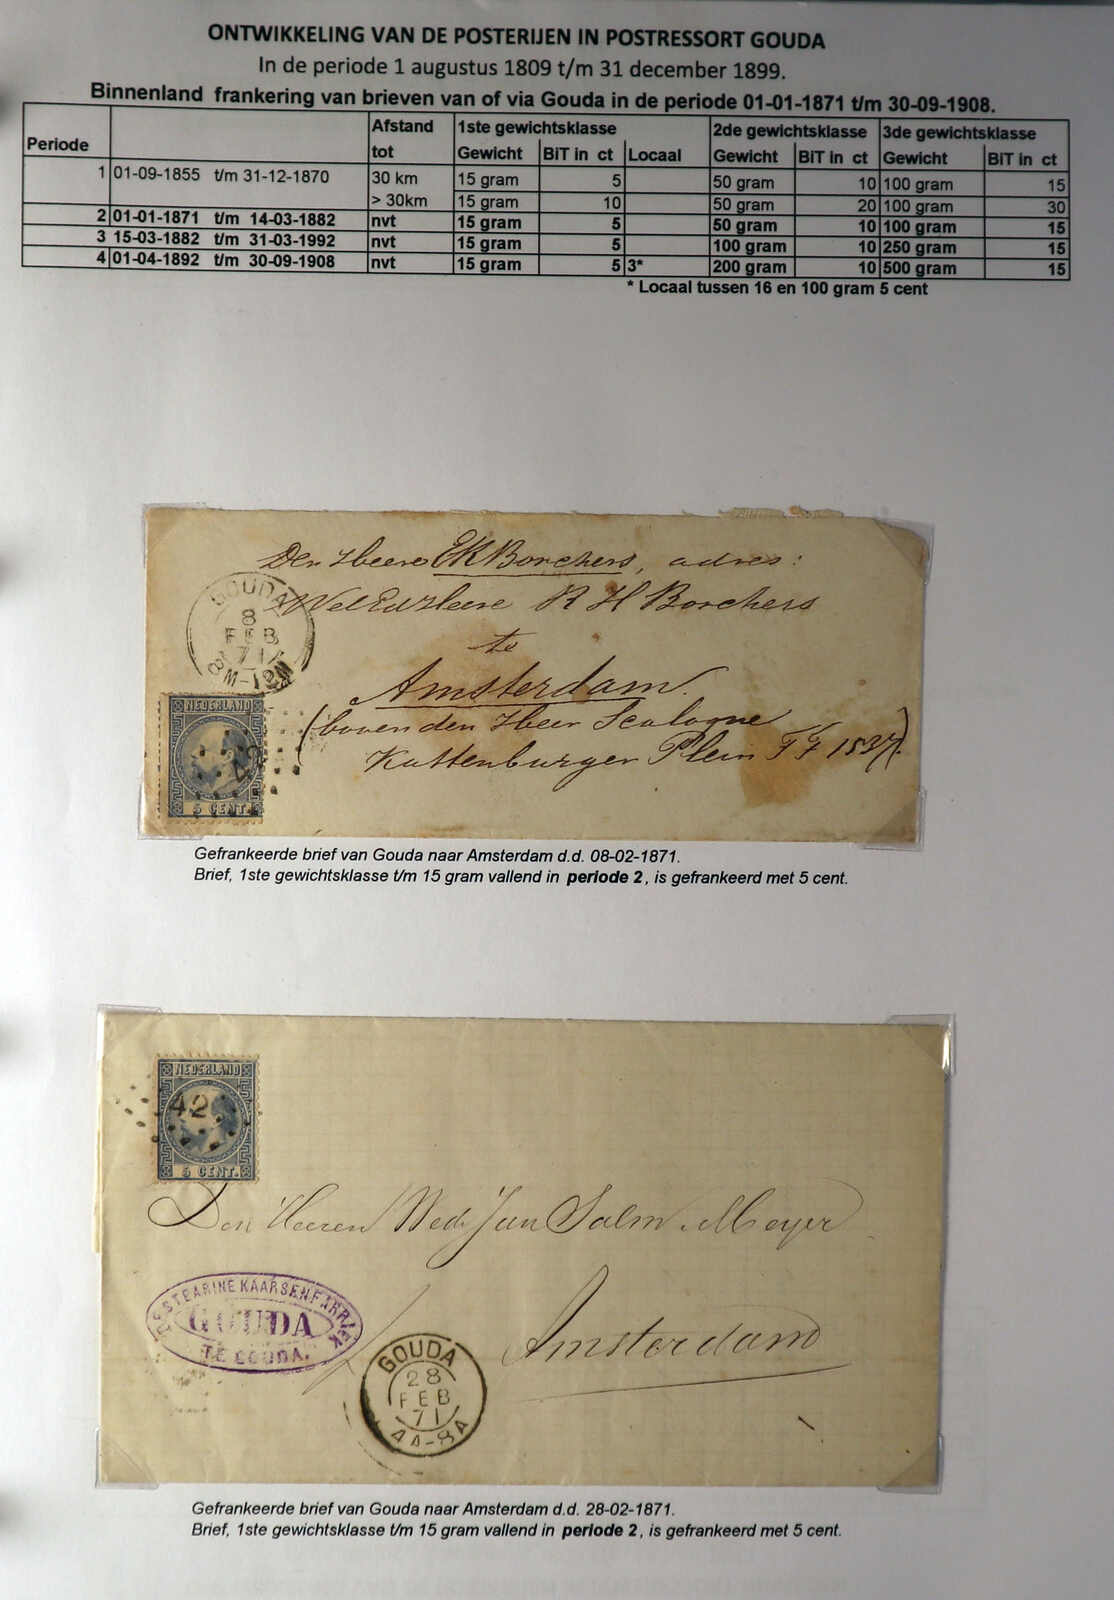 ONTWIKKELING VAN DE POSTERIJEN IN POSTRESSORT GOUDA
In de periode 1 augustus 1809 t/m 31 december 1899.
Binnenland frankering van brieven van of via Gouda in de periode 01-01-1871 t/m 30-09-1908.
Periode Afstand tot 1ste gewichtsklasse 2de gewichtsklasse 3de gewichtsklasse
Gewicht BiT in ct Locaal Gewicht BiT in ct Gewicht BiT in ct
1 01-09-1855 t/m 31-12-1870 30 km 15 gram 5 50 gram 10 100 gram 15
> 30km 15 gram 10 50 gram 20 100 gram 30
2 01-01-1871 t/m 14-03-1882 nvt 15 gram 5 50 gram 10 100 gram 15
3 15-03-1882 t/m 31-03-1992 nvt 15 gram 5 100 gram 10 250 gram 15
4 01-04-1892 t/m 30-09-1908 nvt 15 gram 5 3* 200 gram 10 500 gram 15
* Locaal tussen 16 en 100 gram 5 cent
Den Heere EK Borchers, adres:
WelEd Heere R H Borchers
te
Amsterdam.
(boven den Heer Scologne
Kattenburger Plein FF 1537).
GOUDA
8
FEB
71
8M-12M
NEDERLAND
42
5 CENT.
Gefrankeerde brief van Gouda naar Amsterdam d.d. 08-02-1871.
Brief, 1ste gewichtsklasse t/m 15 gram vallend in periode 2, is gefrankeerd met 5 cent.
NEDERLAND
42
5 CENT.
Den Heeren Wed. Jan Salm & Meyer
Amsterdam
STEARINE KAARSENFABRIEK
GOUDA
TE GOUDA.
GOUDA
28
FEB
71
4A-8A
Gefrankeerde brief van Gouda naar Amsterdam d.d. 28-02-1871.
Brief, 1ste gewichtsklasse t/m 15 gram vallend in periode 2, is gefrankeerd met 5 cent.